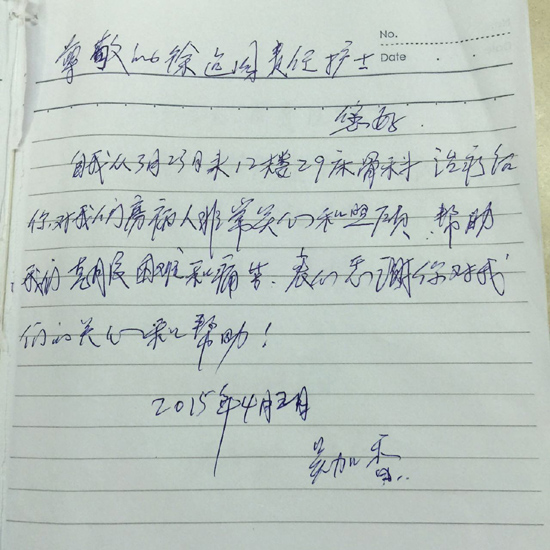 No.
Date
尊敬的徐 责任护士
您好.
自我从3月23日来12楼29床骨科治疗
你对我们房病人非常关心和照顾 帮助
我们克服困难和痛苦. 我们感谢你对我
们的关心和帮助!
2015年4月 日